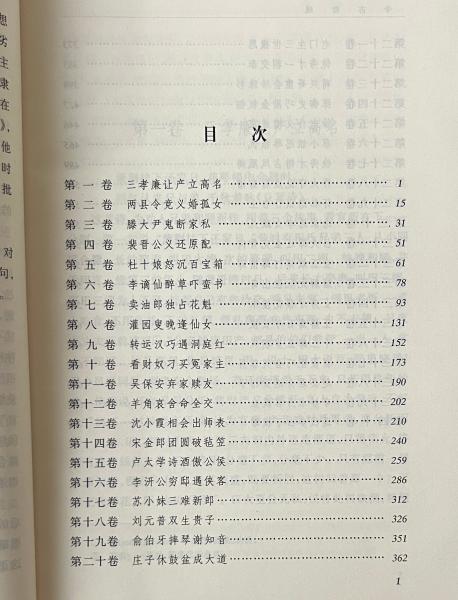 目 次
第一卷 三孝廉让产立高名 1
第二卷 两县令竞义婚孤女 15
第三卷 滕大尹鬼断家私 31
第四卷 裴晋公义还原配 51
第五卷 杜十娘怒沉百宝箱 61
第六卷 李谪仙醉草吓蛮书 78
第七卷 卖油郎独占花魁 93
第八卷 灌园叟晚逢仙女 131
第九卷 转运汉巧遇洞庭红 152
第十卷 看财奴刁买冤家主 173
第十一卷 吴保安弃家赎友 190
第十二卷 羊角哀舍命全交 202
第十三卷 沈小霞相会出师表 210
第十四卷 宋金郎团圆破毡笠 240
第十五卷 卢太学诗酒傲公侯 259
第十六卷 李汧公穷邸遇侠客 286
第十七卷 苏小妹三难新郎 312
第十八卷 刘元普双生贵子 326
第十九卷 俞伯牙摔琴谢知音 351
第二十卷 庄子休鼓盆成大道 362
1